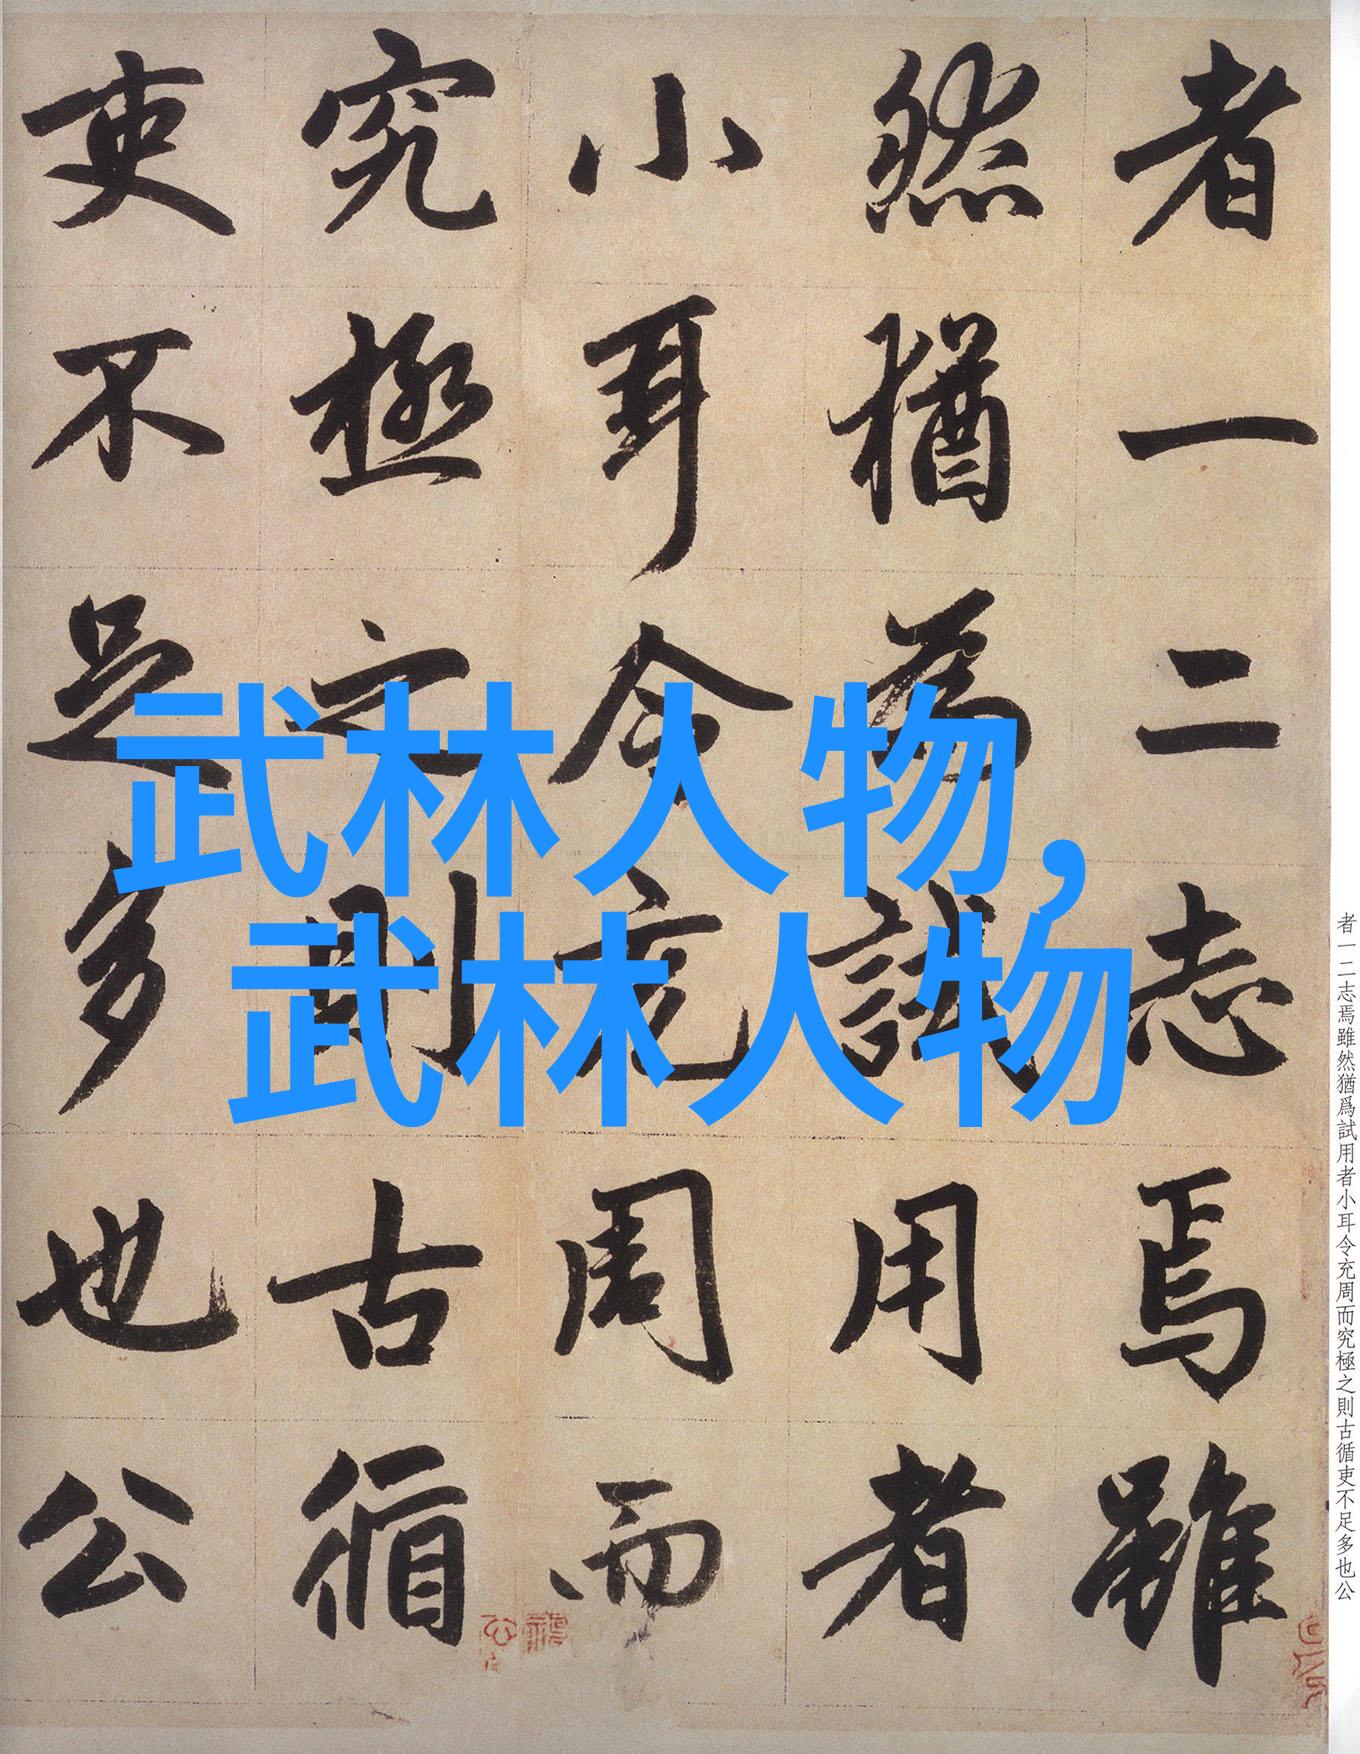 武林人物，
武林人物
者一二志焉雖
然猶為試用者
小耳令充周而
究極之則古循
吏不足多也公
者一二志焉雖然猶爲試用者小耳令充周而究極之則古循吏不足多也公